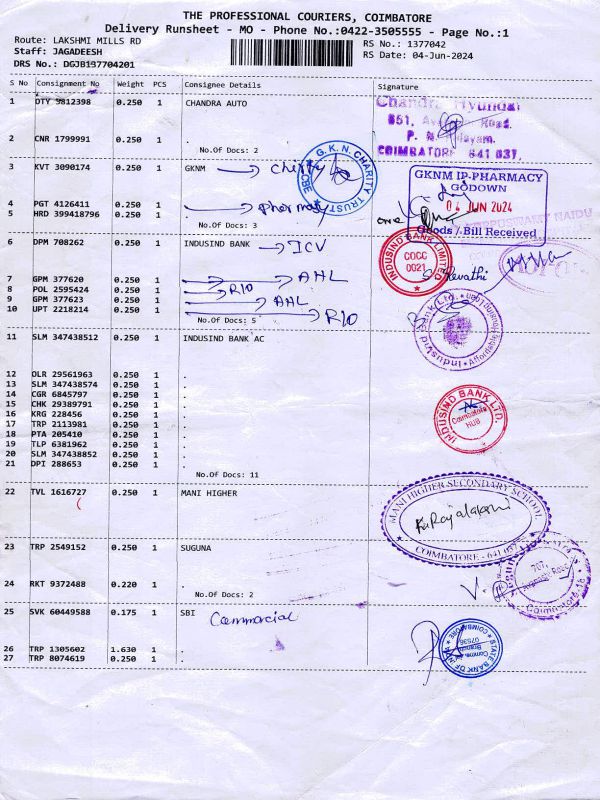 THE PROFESSIONAL COURIERS, COIMBATORE
Delivery Runsheet - MO - Phone No.:0422-3505555 - Page No.:1
Route: LAKSHMI MILLS RD
Staff: JAGADEESH
DRS No.: DGJB137704201
RS No.: 1377042
RS Date: 04-Jun-2024
S No Consignment No Weight PCS Consignee Details Signature
1 DTY 3812398 0.250 1 CHANDRA AUTO
Chandra Hyundai
651, Road.
COIMBATORE 641 037.
2 CNR 1799991 0.250 1 .
No.Of Docs: 2
3 KVT 3090174 0.250 1 GKNM
G.K.N. CHARITY TRUST
GKNM IP-PHARMACY
GODOWN
04 JUN 2024
Goods / Bill Received
4 PGT 4126411 0.250 1 . pharmacy
5 HRD 399418796 0.250 1 .
No.Of Docs: 3
6 DPM 708262 0.250 1 INDUSIND BANK ICV
INDUSIND BANK LIMITED
COCC
0021
7 GPM 377620 0.250 1 . AHL
8 POL 2595424 0.250 1 . R10
9 GPM 377623 0.250 1 . AHL
10 UPT 2218214 0.250 1 . R10
No.Of Docs: 5
IndusInd Bank Ltd. Affordable Housing Loan
11 SLM 347438512 0.250 1 INDUSIND BANK AC
12 OLR 29561963 0.250 1 .
13 SLM 347438574 0.250 1 .
14 CGR 6845797 0.250 1 .
15 CHK 29389791 0.250 1 .
16 KRG 228456 0.250 1 .
17 TRP 2113981 0.250 1 .
18 PTA 205410 0.250 1 .
19 TLP 6381962 0.250 1 .
20 SLM 347438852 0.250 1 .
21 DPI 288653 0.250 1 .
No.Of Docs: 11
INDUSIND BANK LTD.
Coimbatore
HUB
22 TVL 1616727 0.250 1 MANI HIGHER
MANI HIGHER SECONDARY SCHOOL
COIMBATORE - 641 037
23 TRP 2549152 0.250 1 SUGUNA
24 RKT 9372488 0.220 1 .
No.Of Docs: 2
707,
Coimbatore-18
25 SVK 60449588 0.175 1 SBI Commercial
STATE BANK OF INDIA
COIMBATORE
26 TRP 1305602 1.630 1 .
27 TRP 8074619 0.250 1 .